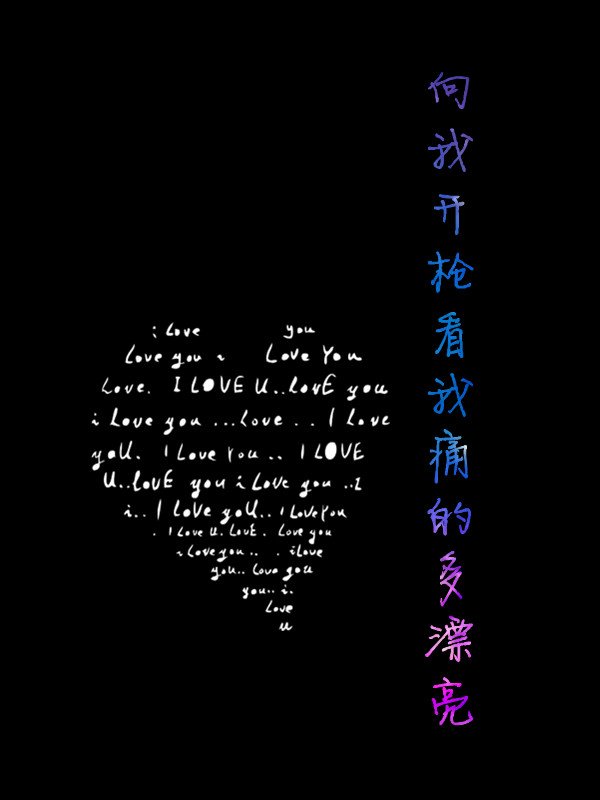 i Love you
Love you i Love You
Love. I LOVE U..lovE you
i Love you ...Love . . I Love
yoU. I Love You .. I LOVE
U..lovE you i Love you ..I
i.. I love yoU.. I Love You
. I Love U. LovE . Love you
i Love you .. . iLove
you.. Love you
you.. i.
Love
u
向我开枪看我痛的多漂亮